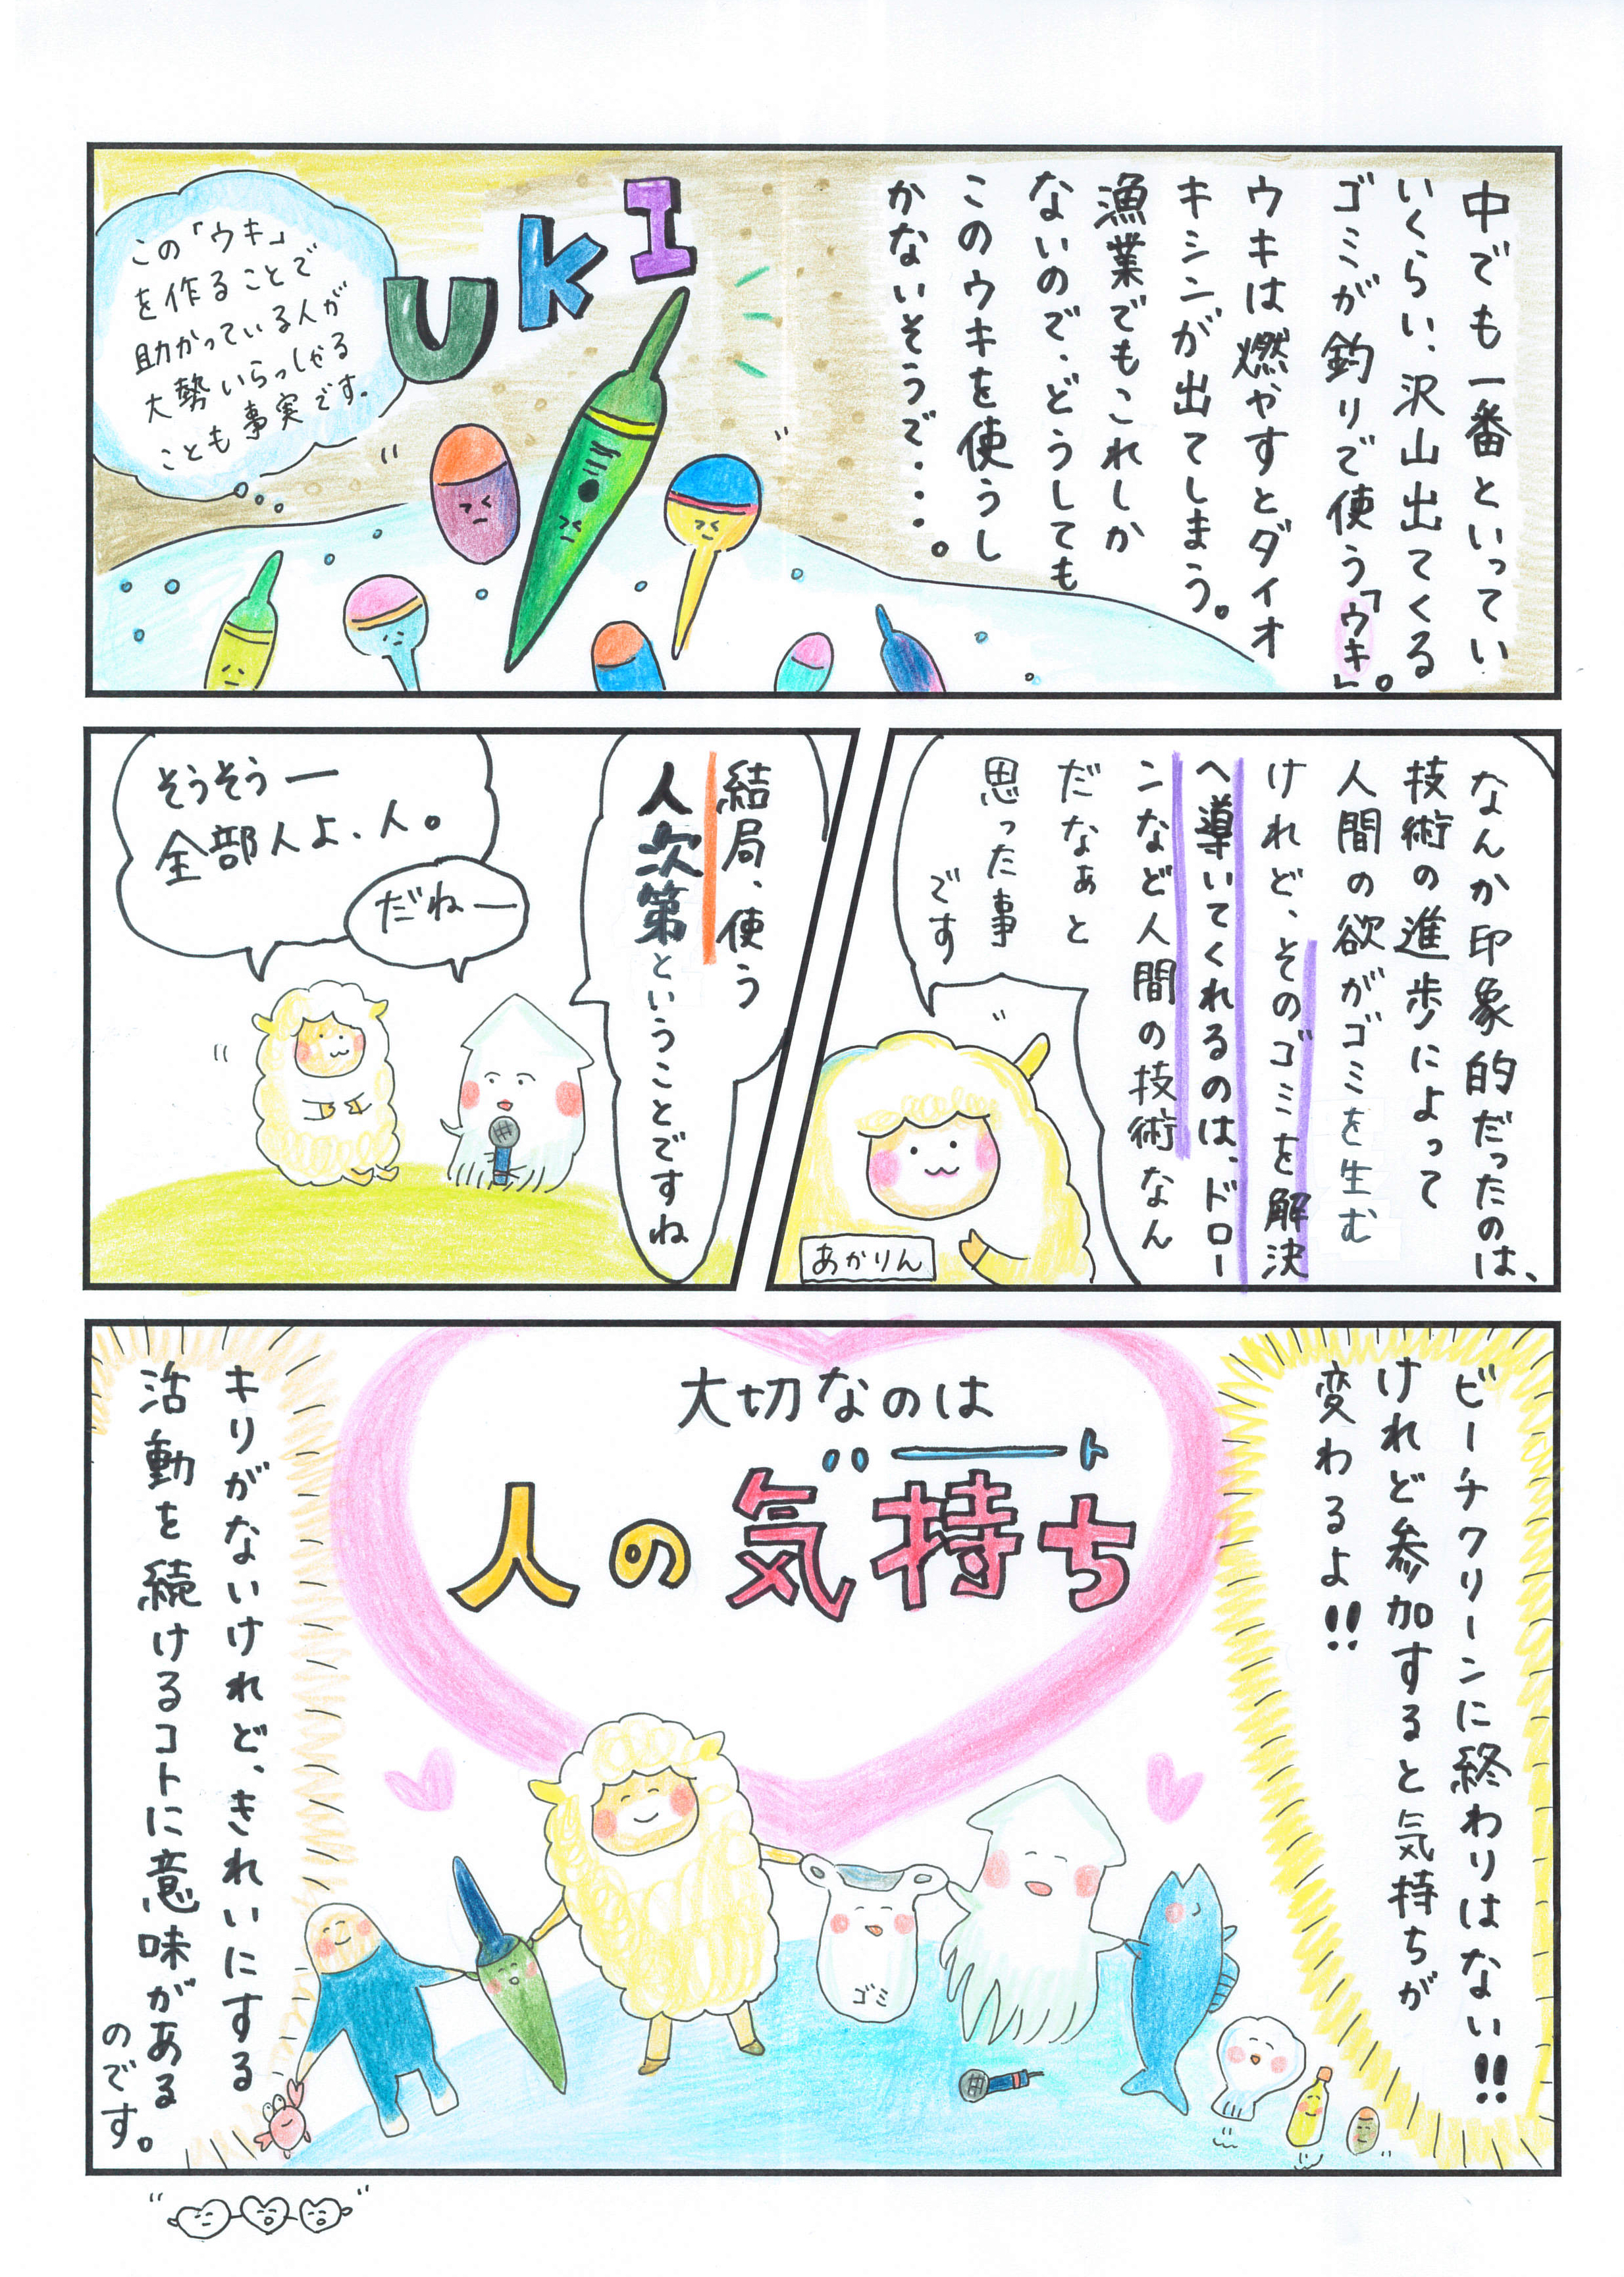 中でも一番といってい
いくらい、沢山出てくる
ゴミが釣りで使う「ウキ」。
ウキは燃やすとダイオ
キシンが出てしまう。
漁業でもこれしか
ないので、どうしても
このウキを使うし
かないそうで・・・。
UKI
この「ウキ」
を作ることで
助かっている人が
大勢いらっしゃる
ことも事実です。
なんか印象的だったのは、
技術の進歩によって
人間の欲がゴミを生む
けれど、そのゴミを解決
へ導いてくれるのは、ドロー
ンなど人間の技術なん
だなぁと
思った事
です
あかりん
結局、使う
人次第ということですね
そうそうー
全部人よ、人。
だねー
ビーチクリーンに終わりはない!!
けれど参加すると気持ちが
変わるよ!!
大切なのは
ハート
人の気持ち
ゴミ
キリがないけれど、きれいにする
活動を続けるコトに意味がある
のです。